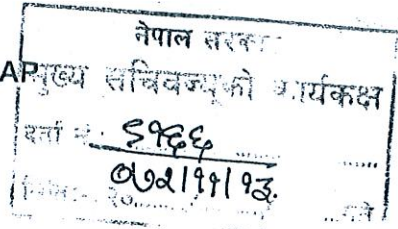 नेपाल सरकार
AP
मुख्य सचिवज्यूको कार्यकक्ष
दर्ता नं. ९१६६
०७२/११/१३